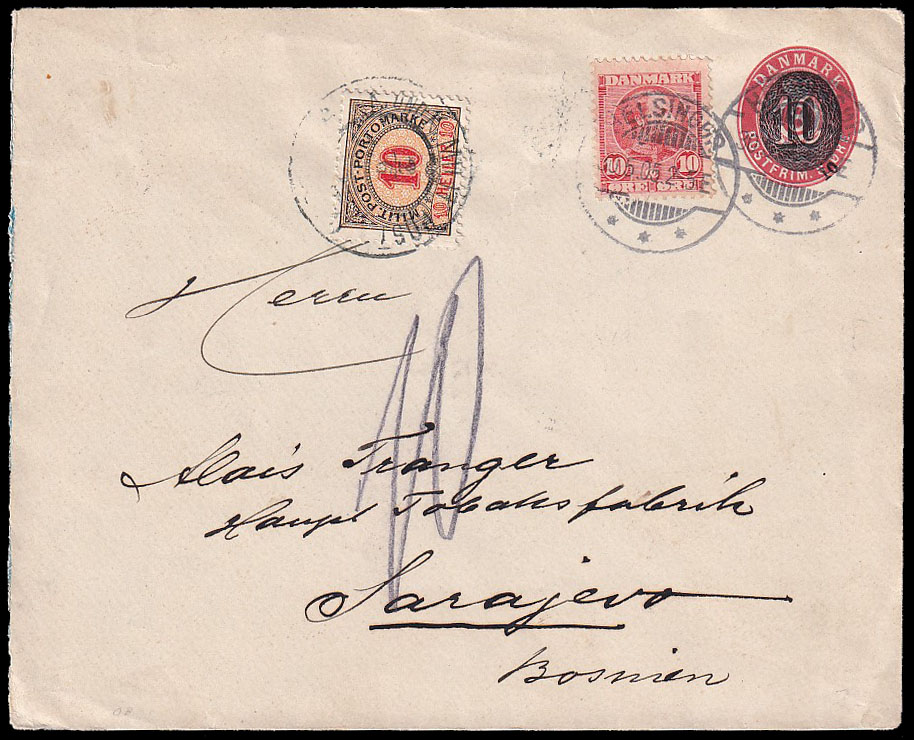 DANMARK
10 10
ØRE ØRE
DANMARK
10
POSTFRIM.
MILIT. POST-PORTOMARKE
10
10 HELLER 10
HELSINGØR
Herrn
10
Alois Tranger
Haupt Tobaksfabrik
Sarajevo
Bosnien